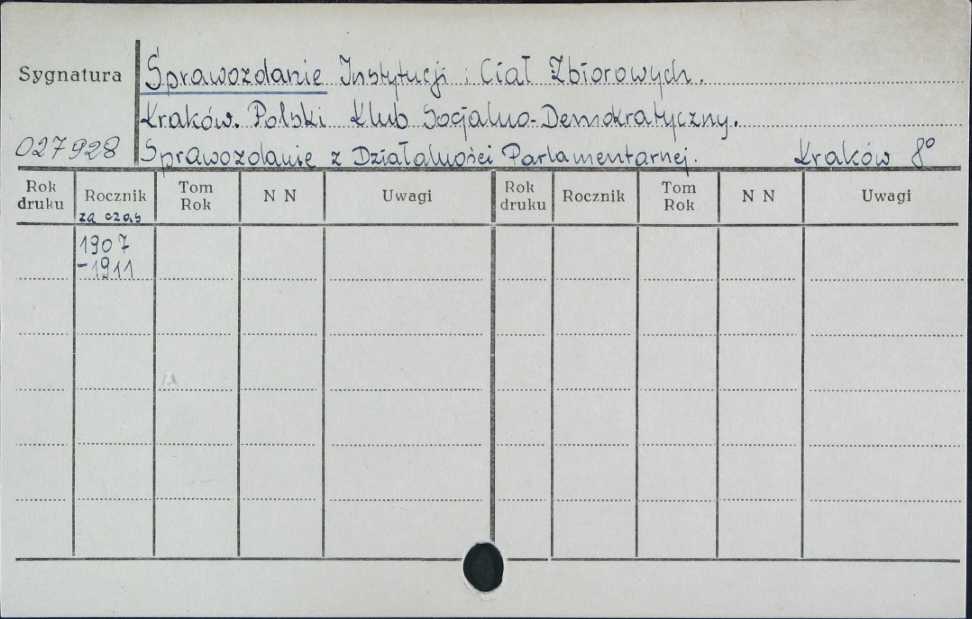 Sygnatura
Sprawozdanie Instytucji i Ciał Zbiorowych.
Kraków. Polski Klub Socjalno-Demokratyczny.
027928 Sprawozdanie z Działalności Parlamentarnej. Kraków 8°
Rok druku Rocznik Tom Rok N N Uwagi Rok druku Rocznik Tom Rok N N Uwagi
za czas
1907
-1911